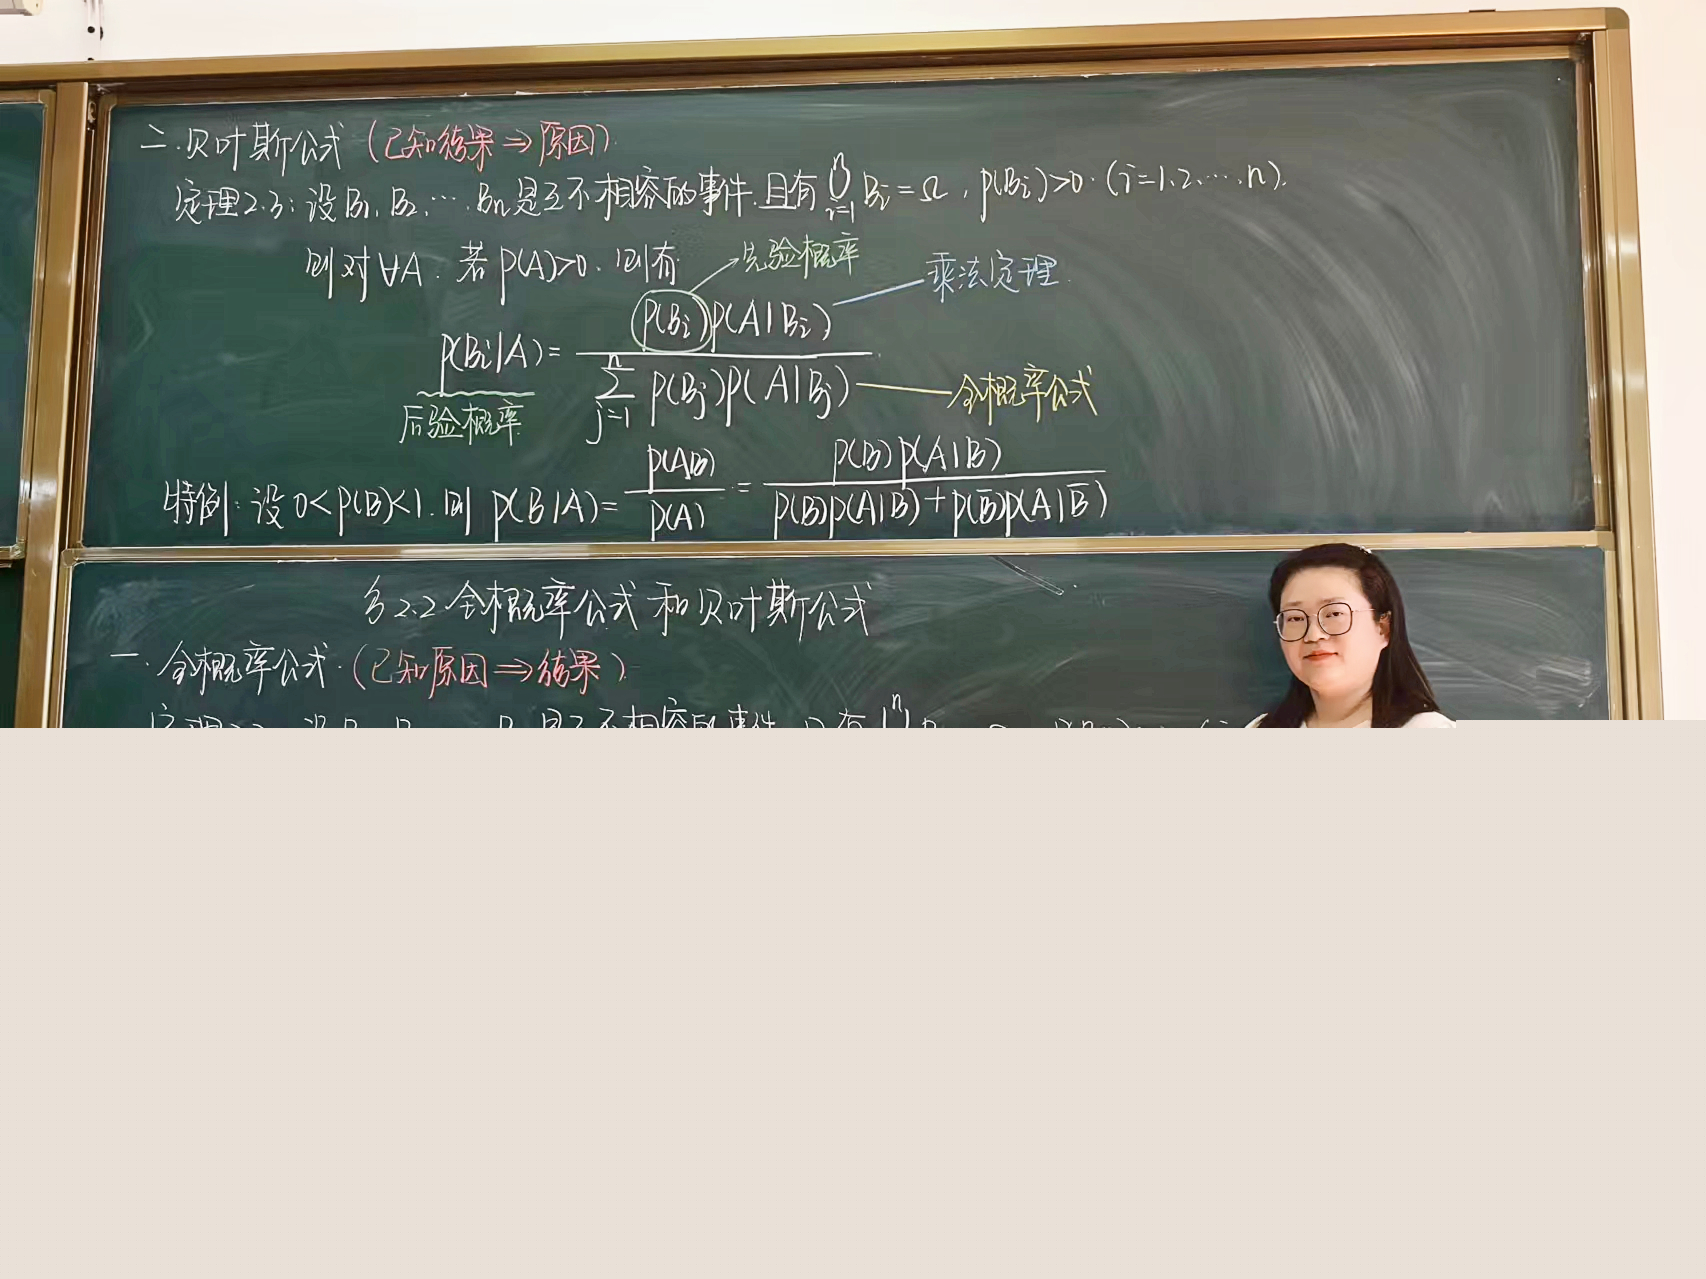 二.贝叶斯公式(已知结果⇒原因).
定理2.3:设B₁,B₂,…,Bₙ是互不相容的事件.且有⋃ᵢ₌₁ⁿBᵢ=Ω,p(Bᵢ)>0.(i=1,2,…,n).
则对∀A.若p(A)>0.则有
先验概率
乘法定理.
p(Bᵢ|A)=p(Bᵢ)p(A|Bᵢ)/∑ⱼ₌₁ⁿp(Bⱼ)p(A|Bⱼ).
全概率公式
后验概率
特例:设0<p(B)<1.则p(B|A)=p(AB)/p(A)=p(B)p(A|B)/p(B)p(A|B)+p(B̄)p(A|B̄)
§2.2全概率公式和贝叶斯公式
一.全概率公式.(已知原因⇒结果).
是互不相容的事件